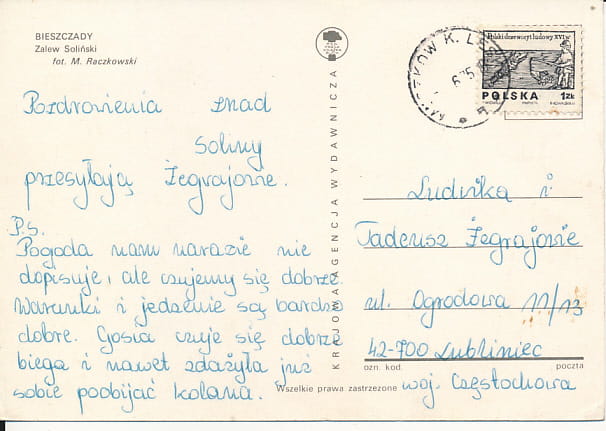 BIESZCZADY
Zalew Soliński
fot. M. Raczkowski
Pozdrowienia znad
Soliny
przesyłają Żegrajowie.
P.S.
Pogoda nam narazie nie
dopisuje, ale czujemy się dobrze
Warunki i jedzenie są bardzo
dobre. Gosia czuje się dobrze
biega i nawet zdążyła już
sobie poobijać kolana.
KRAJOWA AGENCJA WYDAWNICZA
Polski drzeworyt ludowy XVI w.
POLSKA 1 ZŁ
Ludwika i
Tadeusz Żegrajowie
ul. Ogrodowa 11/13
42-700 Lubliniec
ozn. kod. poczta
Wszelkie prawa zastrzeżone
woj. Częstochowa